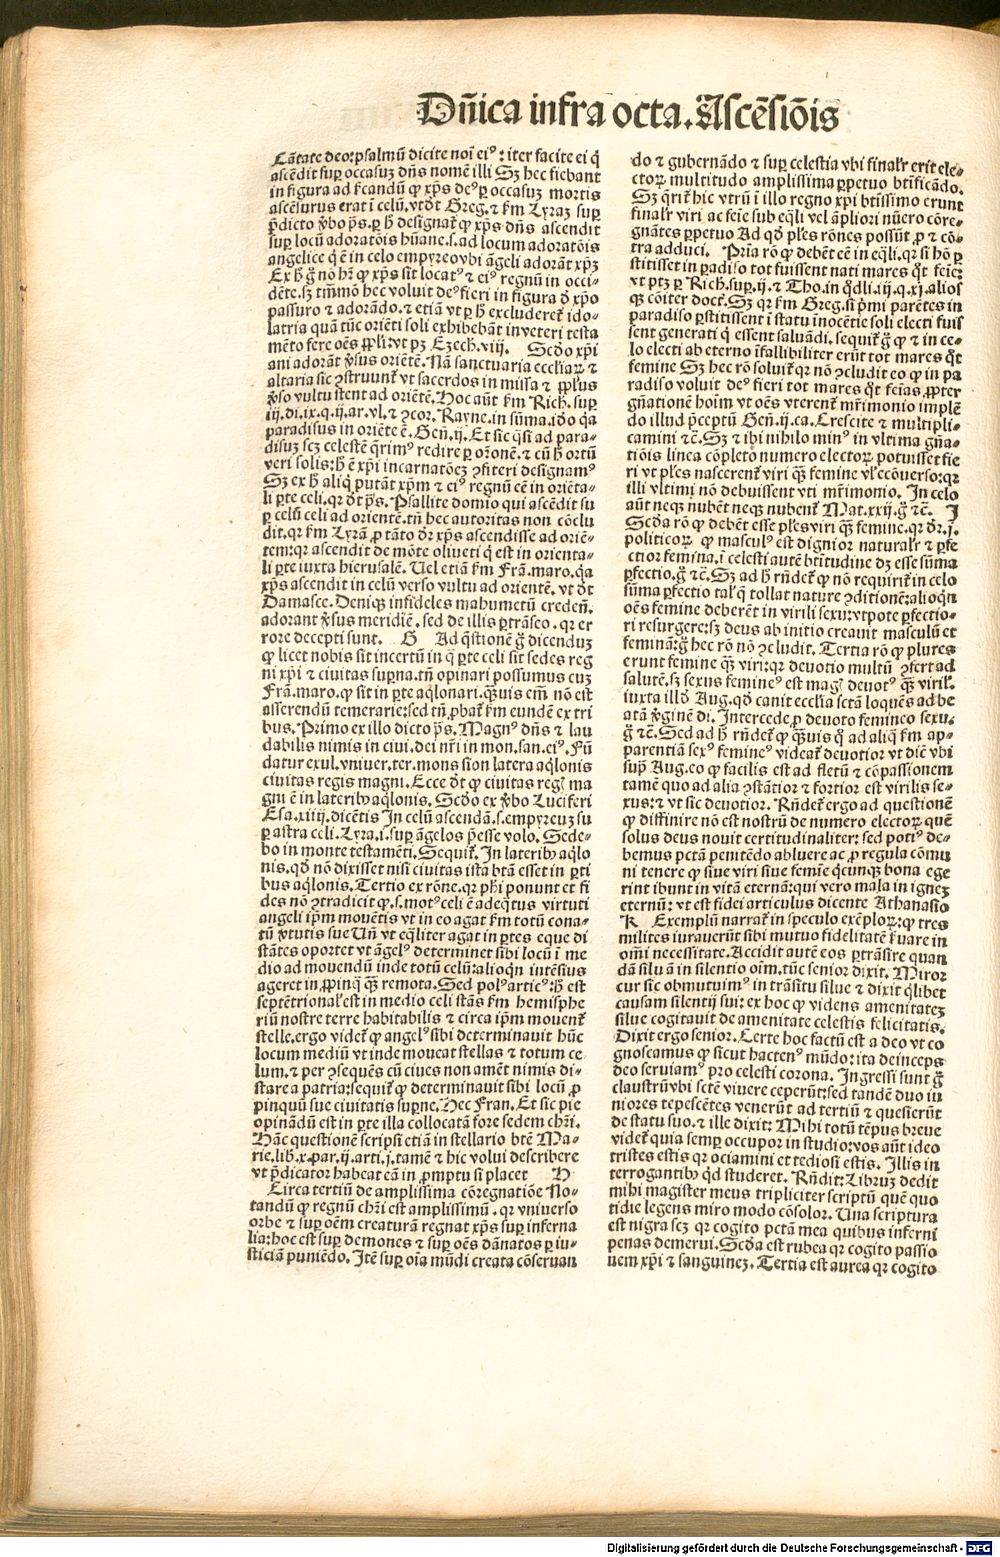 Dñica infra octa. Ascēsiōis
Cātate deo: psalmū dicite noī eiꝰ: iter facite ei q̄
ascēdit suꝑ occasuꝫ dn̄s nomē illi Sꝫ hec fiebant
in figura ad ẜcandū ꝙ xp̄s deꝰ ꝑ occasuꝫ mortis
ascēsurus erat ī celū. vt dt̄ Greg. ⁊ ẜm Lyraꝫ suꝑ
p̄dicto ꝟbo p̄s. ꝑ h̄ designat̄ ꝙ xp̄s dn̄s ascendit
suꝑ locū adoratōis hūane. s. ad locum adoratōis
angelice q̄ ē in celo empyreo vbi āgeli adorāt xp̄ꝫ
Ex h̄ g̊ nō hꝫ ꝙ xp̄s sit locatꝰ ⁊ eiꝰ regnū in occi⸗
dēte. sꝫ tm̄mō hec voluit deꝰ fieri in figura ꝺ̄ xp̄o
passuro ⁊ adorādo. ⁊ etiā vt ꝑ h̄ excluderet̄ ido⸗
latria quā tūc oriēti soli exhibebāt in veteri testa
mēto fere oēs ꝓp̄li: vt pꝫ Ezech. viij. Scd̄o xp̄i
ani adorāt ꝟsus oriētē. Nā sanctuaria eccliaꝝ ⁊
altaria sic ꝯstruunt̄ vt sacerdos in missa ⁊ ꝓpl̄us
ꝟso vultu stent ad oriētē. Hoc aūt ẜm Rich. suꝑ
iij. di. ix. q. ij. ar. vl. ⁊ ꝯcor. Rayne. in sūma. iō̄o qa
paradisus in oriēte ē. Geñ. ij. Et sic q̄si ad para⸗
disuꝫ scꝫ celestē q̄rimꝰ redire ꝑ orōnē. ⁊ cū h̄ ortū
veri solis: h̄ ē xp̄i incarnatōeꝫ ꝯfiteri designamꝰ
Sꝫ ex h̄ aliq̄ putāt xp̄m ⁊ eiꝰ regnū eē in oriēta⸗
li ꝑte celi. qꝛ dt̄ p̄s. Psallite domio qui ascēdit su
ꝑ celū celi ad orientē. tn̄ hec autoritas non cōclu
dit. qꝛ ẜm Lyrā ꝓ tāto dr̄ xp̄s ascendisse ad oriē⸗
tem: qꝛ ascendit de mōte oliueti q̄ est in orienta⸗
li ꝑte iuxta hierusalē. Uel etiā ẜm Frā. maro. q̄a
xp̄s ascendit in celū verso vultu ad orientē. vt dt̄
Damasce. Deniqꝫ infideles mahumetū credeñ.
adorant ꝟsus meridiē. sed de illis ꝑtrāseo. qꝛ er
rore decepti sunt. G Ad q̄stionē g̊ dicenduꝫ
ꝙ licet nobis sit incertū in q̄ ꝑte celi sit sedes reg
ni xp̄i ⁊ ciuitas suꝑna. tn̄ opinari possumus cuꝫ
Frā. maro. ꝙ sit in ꝑte aq̄lonari. q̄ꝫuis em̄ nō eit
asserendū temerarie: sed tn̄ ꝓbat̄ ẜm eundē ex tri
bus. Primo ex illo dicto p̄s. Magnꝰ dn̄s ⁊ lau
dabilis nimis in ciui. dei nr̄i in mon. san. eiꝰ. Fū
datur exul. vniuer. ter. mons sion latera aq̄lonis
ciuitas regis magni. Ecce dt̄ ꝙ ciuitas regꝭ ma
gni ē in lateribꝰ aq̄lonis. Scd̄o ex ꝟbo Luciferi
Esa. xiiij. dicētis In celū ascendā. s. empyreuꝫ su
ꝑ astra celi. Lyra. i. suꝑ āgelos p̄esse volo. Sede⸗
bo in monte testamēti. Sequit̄. In lateribꝰ aq̄lo
nis. qd̄ nō dixisset nisi ciuitas ista btā esset in ꝑti
bus aq̄lonis. Tertio ex rōne. qꝛ ph̄i ponunt et fi
des nō ꝯtradicit ꝙ. s. motꝰ celi ē adeq̄tus virtuti
angeli ip̄m mouētis vt in eo agat ẜm totū cona⸗
tū ꝟtutis sue Un̄ vt eq̄liter agat in ꝑtes eque di
stātes oportet vt āgelꝰ determinet sibi locū ī me
dio ad mouendū inde totū celū: alioqn̄ intēsius
ageret in ꝓpinq̄ q̄ꝫ remota. Sed polꝰ articꝰ: h̄ est
septētrional̄ est in medio celi stās ẜm hemisphe
riū nostre terre habitabilis ⁊ circa ip̄m mouent̄
stelle. ergo videt̄ ꝙ angelꝰ sibi determinauit hūc
locum mediū vt inde moueat stellas ⁊ totum ce
lum. ⁊ per ꝯsequēs cū ciues non amēt nimis di⸗
stare a patria: sequit̄ ꝙ determinauit sibi locū ꝓ
pinquū sue ciuitatis suꝑne. Hec Fran. Et sic pie
opinādū est in ꝑte illa collocatā fore sedem chr̄i.
Hāc questionē scripsi etiā in stellario btē Ma⸗
rie. lib. x. par. ij. arti. j. tamē ⁊ hic volui describere
vt p̄dicator habeat eā in ꝓmptu si placet H
Circa tertiū de amplissima cōregnatiōe No⸗
tandū ꝙ regnū chr̄i est amplissimū. qꝛ vniuerso
orbe ⁊ suꝑ oēm creaturā regnat xp̄s suꝑ inferna
lia: hoc est suꝑ demones ⁊ suꝑ oēs dānatos ꝑ iu⸗
sticiā puniēdo. Itē suꝑ oīa mūdi creata cōseruan
do ⁊ gubernādo ⁊ suꝑ celestia vbi final̄r erit ele⸗
ctoꝝ multitudo amplissima ꝑpetuo btīficādo.
Sꝫ q̄rit̄ hic vtrū ī illo regno xp̄i btissimo erunt
final̄r viri ac feīe sub eq̄li vel āpliori nūero cōre⸗
gnātes ꝑpetuo Ad qd̄ pl̄es rōnes possūt ꝓ ⁊ cō⸗
tra adduci. Pria rō ꝙ debēt eē in eq̄li. qꝛ si hō ꝑ
stitisset in ꝑadiso tot fuissent nati mares q̄t feīe:
vt ptꝫ ꝑ Rich. suꝑ. ij. ⁊ Tho. in q̄dli. iij. q. xj. alios
qꝫ cōiter doct̄. Sꝫ qꝛ ẜm Greg. si p̄mi parētes in
paradiso ꝑstitissent ī statu inocētie soli electi fuis
sent generati q̄ essent saluādi. sequit̄ g̊ ꝙ ⁊ in ce⸗
lo electi ab eterno īfallibiliter erūt tot mares q̄t
femine Sꝫ hec rō soluit̄ qꝛ nō ꝯcludit eo ꝙ in pa
radiso voluit deꝰ fieri tot mares q̄t feīas ꝓpter
gn̄ationē hoīm vt oēs vterent̄ mr̄imonio implē
do illud p̄ceptū Geñ. ij. ca. Crescite ⁊ multipli⸗
camini ⁊c̄. Sꝫ ⁊ ibi nihilo minꝰ in vltima gn̄a⸗
tiōis linea cōpleto numero electoꝝ potuisset fie
ri vt pl̄es nascerent̄ viri q̄ꝫ femine vl̄ ecōuerso: qꝛ
illi vltimi nō debuissent vti mr̄imonio. In celo
aūt neqꝫ nubēt neqꝫ nubent̄ Mat. xxij. g̊ ⁊c̄. I
Scd̄a rō ꝙ debēt esse pl̄es viri q̄ꝫ femine. qꝛ dr̄. j.
politicoꝝ ꝙ masculꝰ est dignior natural̄r ⁊ ꝑfe
ctior femina. ī celesti autē btītudine dꝫ esse sūma
ꝑfectio. g̊ ⁊c̄. Sꝫ ad h̄ rn̄det̄ ꝙ nō requirit̄ in celo
sūma ꝑfectio tal̄ q̄ tollat nature ꝯditionē: alioqn̄
oēs femine deberēt in virili sexu: vtpote ꝑfectio⸗
ri resurgere: sꝫ deus ab initio creauit masculū et
feminā: g̊ hec rō nō ꝯcludit. Tertia rō ꝙ plures
erunt femine q̄ꝫ viri: qꝛ deuotio multū ꝯfert ad
salutē. sꝫ sexus femineꝰ est magꝭ deuotꝰ q̄ꝫ virił.
iuxta illd̄ Aug. qd̄ canit ecclīa sctā loquēs ad be
atā ꝟginē di. Intercede ꝓ deuoto femineo sexu.
g̊ ⁊c̄. Sed ad h̄ rn̄det̄ ꝙ q̄ꝫuis q̄ ad aliq̄ ẜm ap⸗
parentiā sexꝰ femineꝰ videat̄ deuotior vt diē vbi
suꝑ Aug. eo ꝙ facilis est ad fletū ⁊ cōpassionem
tamē quo ad alia ꝯstātior ⁊ fortior est virilis se⸗
xus: ⁊ vt sic deuotior. Rn̄det̄ ergo ad questionē
ꝙ diffinire nō est nostrū de numero electoꝝ quē
solus deus nouit certitudinaliter: sed potiꝰ de⸗
bemus pctā penitēdo abluere ac ꝓ regula cōmu
ni tenere ꝙ siue viri siue femīe q̄cunqꝫ bona ege
rint ibunt in vitā eternā: qui vero mala in igneꝫ
eternū: vt est fidei articulus dicente Athanasio
K Exemplū narrat̄ in speculo exēploꝝ: ꝙ tres
milites iurauerūt sibi mutuo fidelitatē ẜuare in
om̄i necessitate. Accidit autē eos ꝑtrāsire quan
dā siluā in silentio oīm. tūc senior dixit. Miror
cur sic obmutuimꝰ in trāsitu silue ⁊ dixit q̄libet
causam silentij sui: ex hoc ꝙ videns amenitateꝫ
silue cogitauit de amenitate celestis felicitatis.
Dixit ergo senior. Certe hoc factū est a deo vt co
gnoscamus ꝙ sicut hactenꝰ mūdo: ita deinceps
deo seruiamꝰ pro celesti corona. Ingressi sunt g̊
claustrū vbi sctē vivere ceperūt: sed tandē duo iu
niores tepescētes venerūt ad tertiū ⁊ quesierūt
de statu suo. ⁊ ille dixit: Mihi totū tēpus breue
videt̄ quia semꝑ occupor in studio: vos aūt ideo
tristes estis qꝛ ociamini et tediosi estis. Illis in
terrogantibꝰ qd̄ studeret. Rn̄dit: Libruꝫ dedit
mihi magister meus tripliciter scriptū quē quo
tidie legens miro modo cōsolor. Una scriptura
est nigra scꝫ qꝛ cogito pctā mea quibus inferni
penas demerui. Scd̄a est rubea qꝛ cogito passio
nem xp̄i ⁊ sanguineꝫ. Tertia est aurea qꝛ cogito
Digitalisierung gefördert durch die Deutsche Forschungsgemeinschaft - DFG